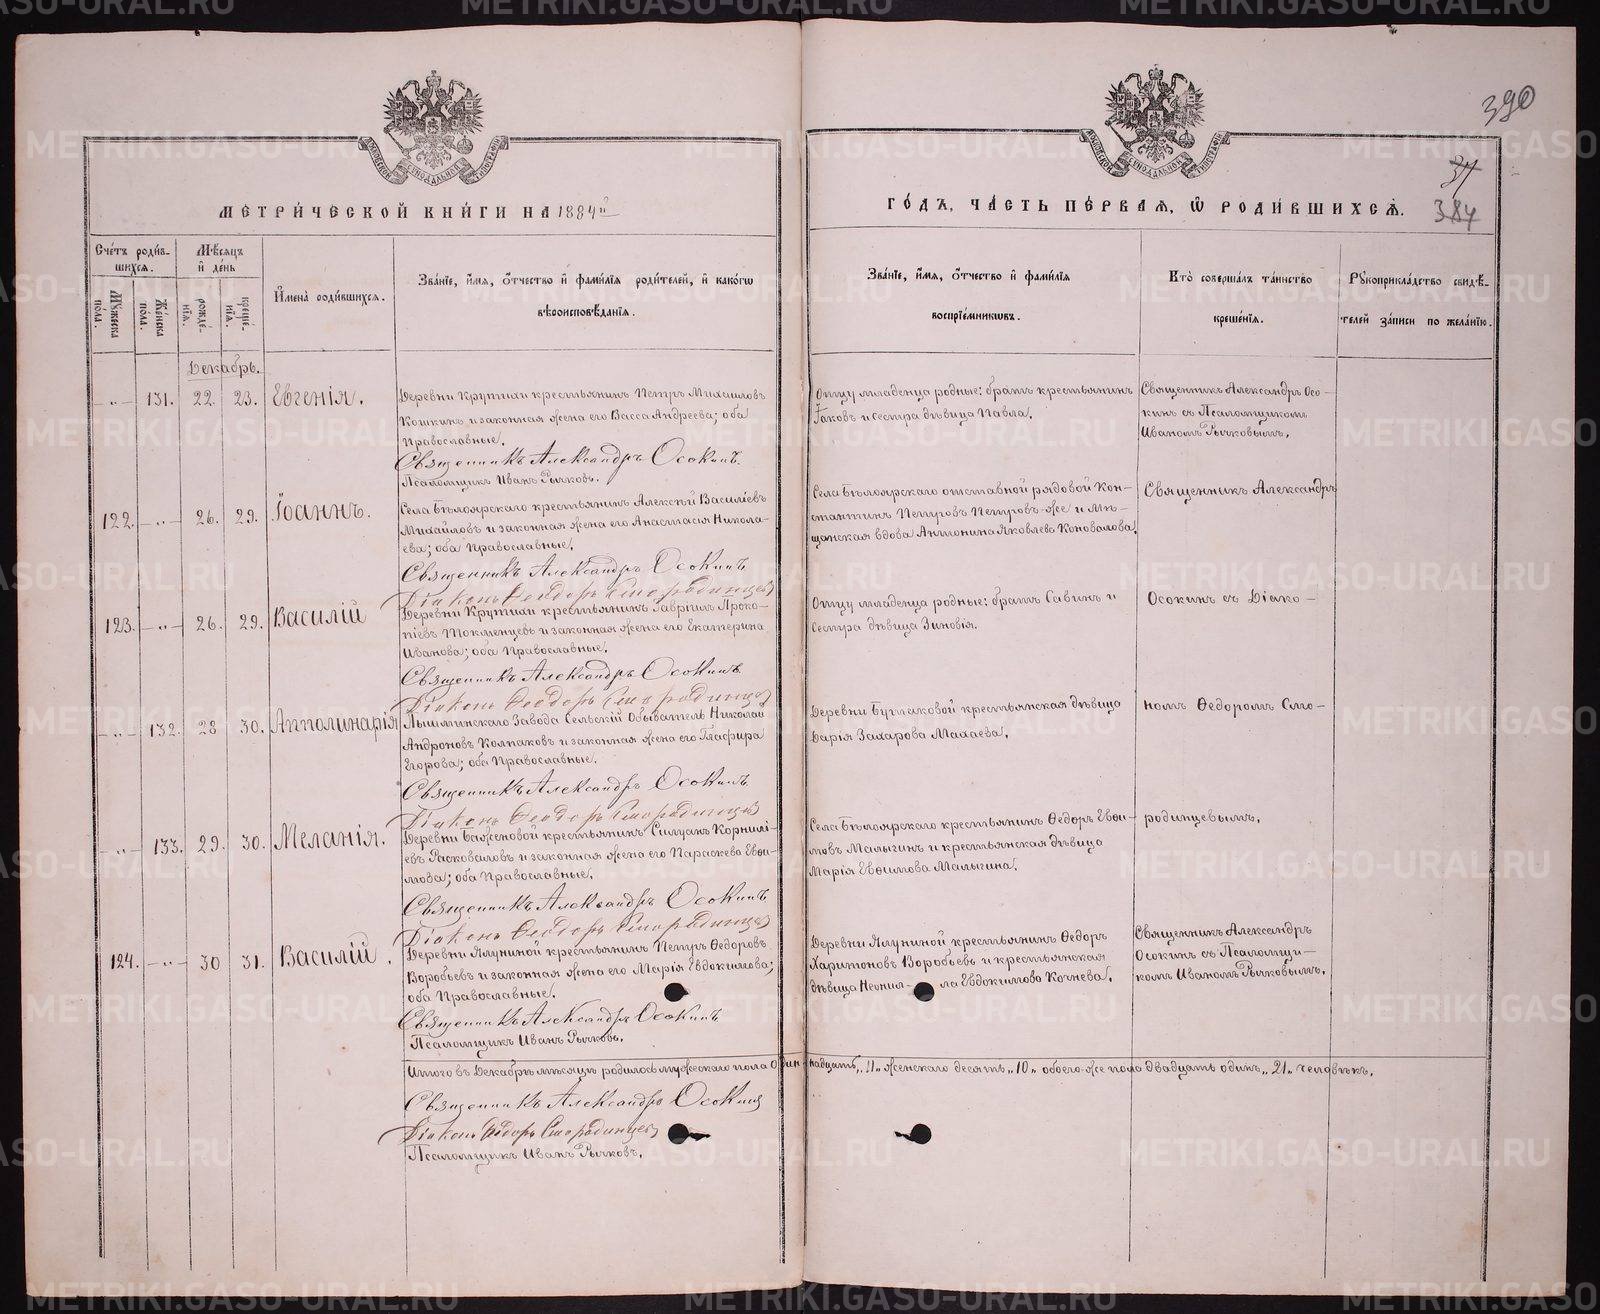 390
37
384
МЕТРИЧЕСКОЙ КНИГИ НА 1884й
ГОДЪ, ЧАСТЬ ПЕРВАЯ, Ѡ РОДИВШИХСЯ.
Счетъ родившихся.
Мужеска пола.
Женска пола.
Мѣсяцъ и день
рожденія.
крещенія.
Имена родившихся.
Званіе, имя, отчество и фамилія родителей, и какогѡ
вѣроисповѣданія.
Званіе, имя, отчество и фамилія
воспріемниковъ.
Кто совершалъ таинство
крещенія.
Рукоприкладство свидѣ-
телей записи по желанію.
Декабрь.
-„- 131. 22. 23. Евгенія.
Деревни Крутихи крестьянинъ Петръ Михаиловъ
Кошкинъ и законная жена его Васса Андреева; оба
Православные.
Священникъ Александръ Осокинъ.
Псаломщикъ Иванъ Рычковъ.
Отцу младенца родные: братъ крестьянинъ
Іаковъ и сестра дѣвица Павла.
Священникъ Александръ Осо-
кинъ съ Псаломщикомъ
Иваномъ Рычковымъ.
122. -„- 26. 29. Іоаннъ.
Села Бѣлоярскаго крестьянинъ Алексѣй Василіевъ
Михайловъ и законная жена его Анастасія Никола-
ева; оба Православные.
Священникъ Александръ Осокинъ
Діаконъ Ѳеодоръ Смородинцевъ
Села Бѣлоярскаго отставной рядовой Кон-
стантинъ Петровъ Петровъ-же и Мѣ-
щанская вдова Антонина Яковлева Коновалова.
Священникъ Александръ
123. -„- 26. 29. Василій
Деревни Крутихи крестьянинъ Гавріилъ Проко-
піевъ Токменцевъ и законная жена его Екатерина
Иванова; оба Православные.
Священникъ Александръ Осокинъ
Діаконъ Ѳеодоръ Смородинцевъ
Отцу младенца родные: братъ Савинъ и
сестра дѣвица Зиновія.
Осокинъ съ Діако-
-„- 132. 28 30. Апполинарія
Пышминскаго Завода Сельскій Обыватель Николай
Андроновъ Колпаковъ и законная жена его Глафира
Егорова; оба Православные.
Священникъ Александръ Осокинъ
Діаконъ Ѳеодоръ Смородинцевъ
Деревни Бутаковой крестьянская дѣвица
Дарія Захарова Махаева.
номъ Ѳедоромъ Смо-
-„- 133. 29. 30. Меланія.
Деревни Баженовой крестьянинъ Силуанъ Корнилі-
евъ Расковаловъ и законная жена его Параскева Евѳи-
мова; оба Православные.
Священникъ Александръ Осокинъ
Діаконъ Ѳеодоръ Смородинцевъ
Села Бѣлоярскаго крестьянинъ Ѳедоръ Евѳи-
мовъ Малыгинъ и крестьянская дѣвица
Марія Евѳимова Малыгина.
родинцевымъ.
124. -„- 30 31. Василій.
Деревни Ялуниной крестьянинъ Петръ Ѳедоровъ
Воробьевъ и законная жена его Марія Евдокимова;
оба Православные.
Священникъ Александръ Осокинъ
Псаломщикъ Иванъ Рычковъ.
Деревни Ялуниной крестьянинъ Ѳедоръ
Харитоновъ Воробьевъ и крестьянская
дѣвица Неонил-ла Евдокимова Кочнева.
Священникъ Александръ
Осокинъ съ Псаломщи-
комъ Иваномъ Рычковымъ.
Итого въ Декабрѣ мѣсяцѣ родилось мужескаго пола Одиннадцать „11„ женскаго десять „10„ обоего-же пола двадцать одинъ „21„ человѣкъ.
Священникъ Александръ Осокинъ
Діаконъ Ѳеодоръ Смородинцевъ
Псаломщикъ Иванъ Рычковъ.
METRIKI.GASO-URAL.RU